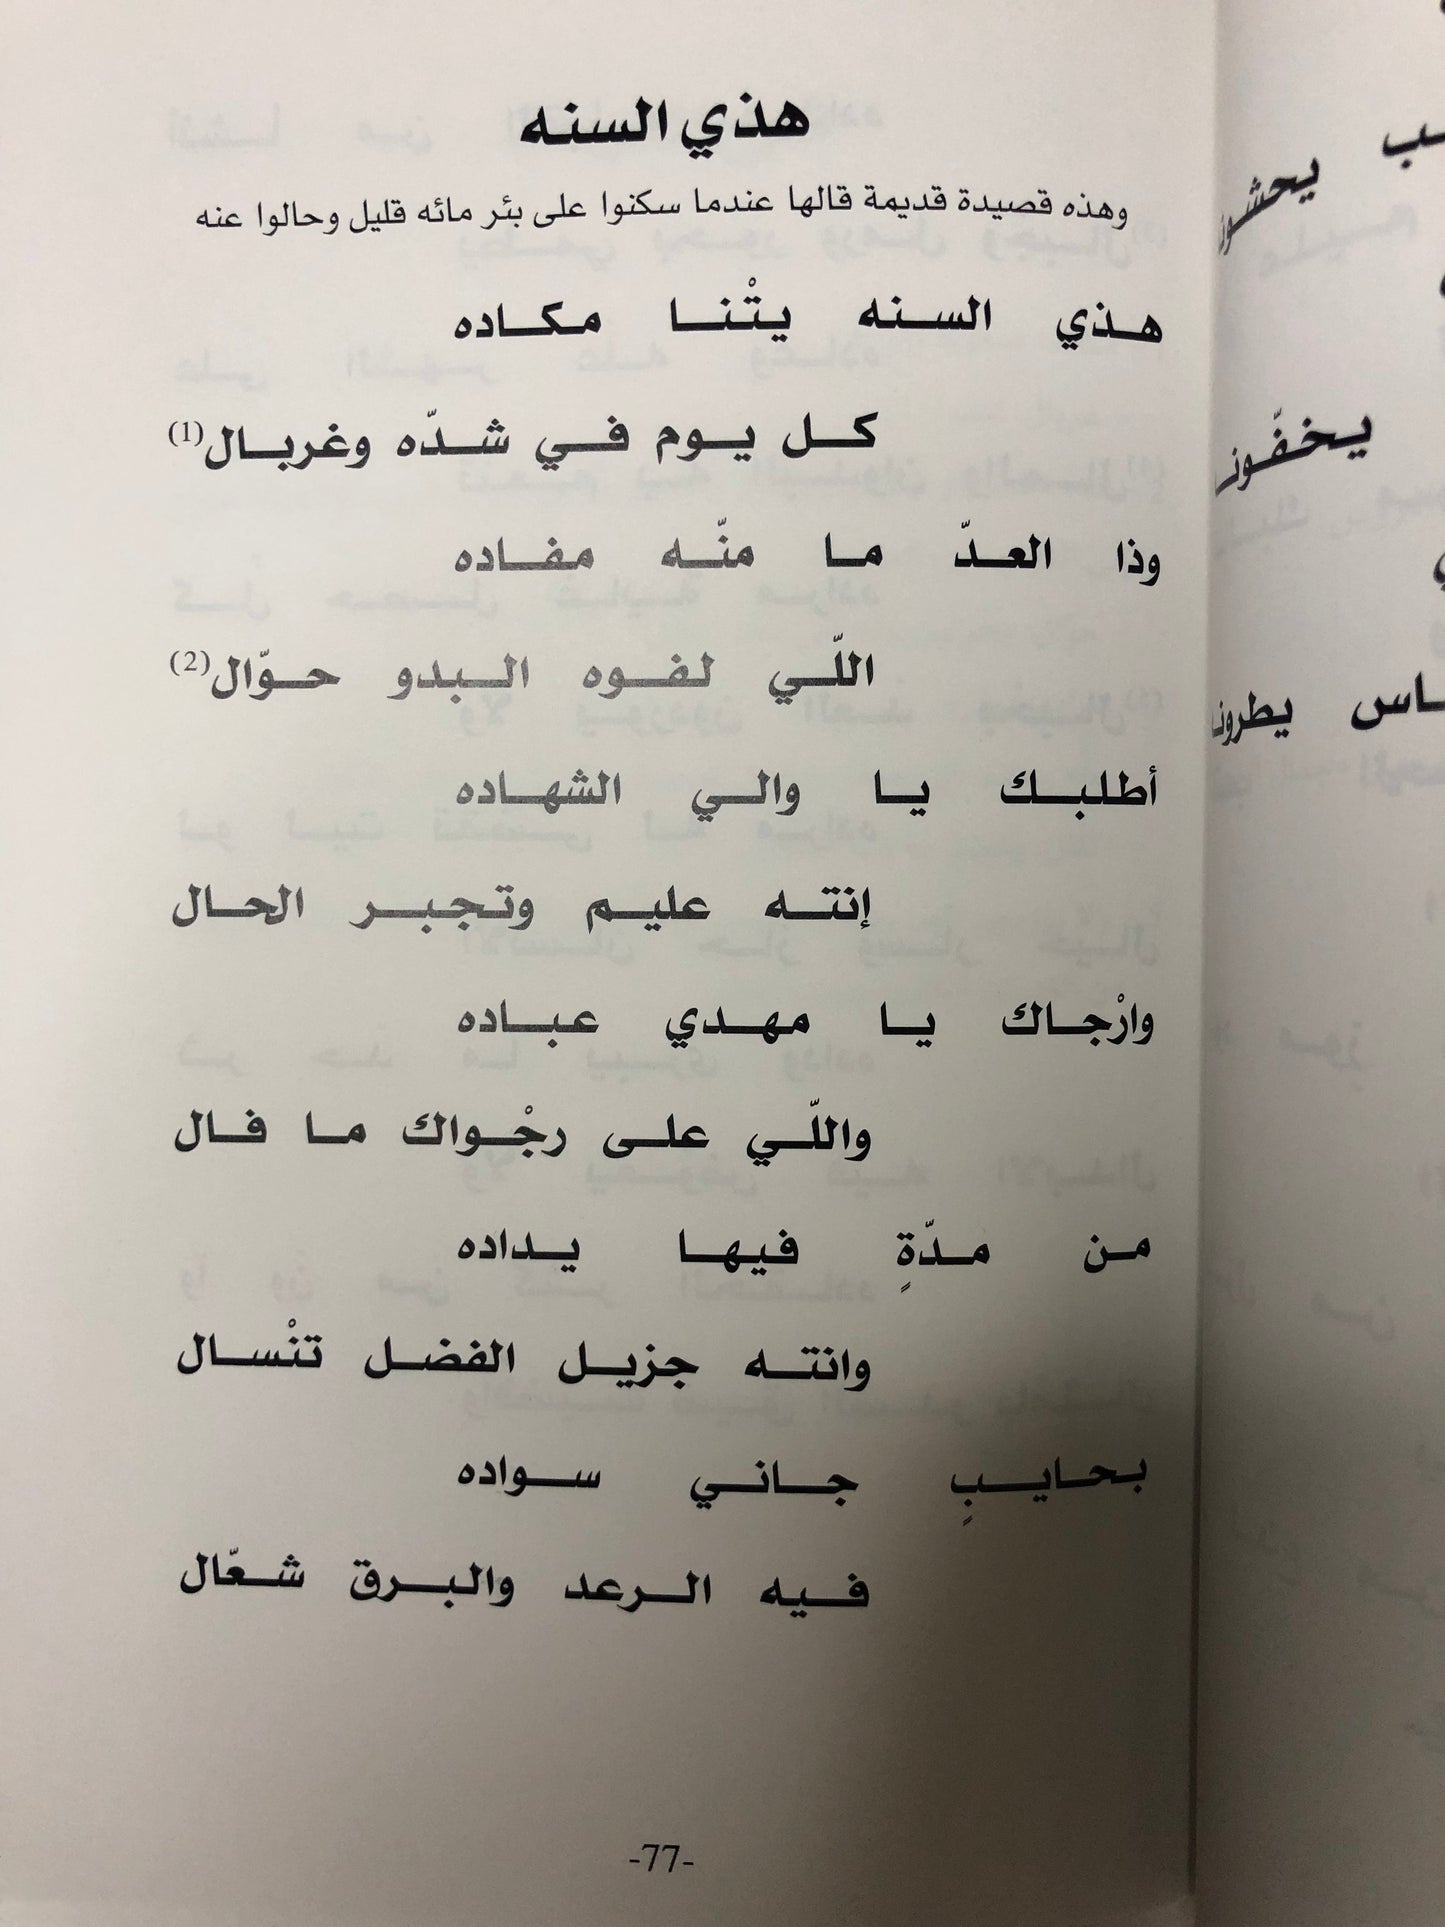 هذي السنه
وهذه قصيدة قديمة قالها عندما سكنوا على بئر مائه قليل وحالوا عنه
هذي السنه يتْنا مكاده
كل يوم في شدّه وغربال(1)
وذا العدّ ما منّه مفاده
اللّي لفوه البدو حوّال(2)
أطلبك يا والي الشهاده
إنته عليم وتجبر الحال
وارْجاك يا مهدي عباده
واللّي على رجْواك ما فال
من مدّةٍ فيها يداده
وانته جزيل الفضل تنْسال
بحايبٍ جاني سواده
فيه الرعد والبرق شعّال
-77-
يحشون
يخفّون
يطرون